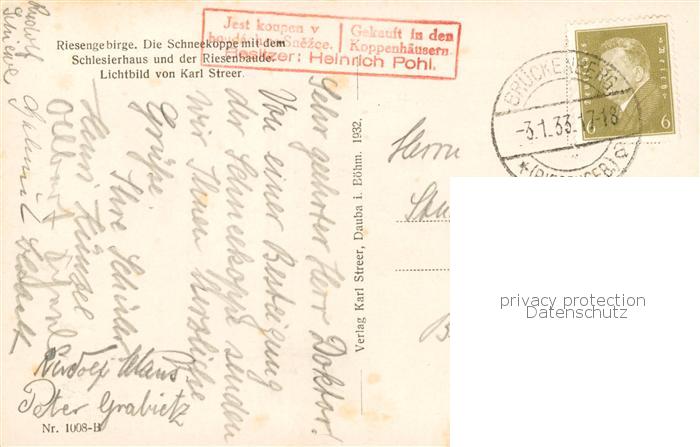 Riesengebirge. Die Schneekoppe mit dem
Schlesierhaus und der Riesenbaude.
Lichtbild von Karl Streer.
Jest koupen v
boudách na Sněžce.
Gekauft in den
Koppenhäusern.
Besitzer: Heinrich Pohl.
BRÜCKENBERG
-3.1.33.17-18
6 6
Sehr geehrter Herr Doktor!
Von einer Besteigung
der Schneekoppe senden
wir Ihnen herzliche
Grüße.
Ihre Schüler
Hans
Helmut
Rudolf
Rudolf Klaus
Peter Grabietz
Herrn
Verlag Karl Streer, Dauba i. Böhm. 1932.
Nr. 1008-B
privacy protection
Datenschutz